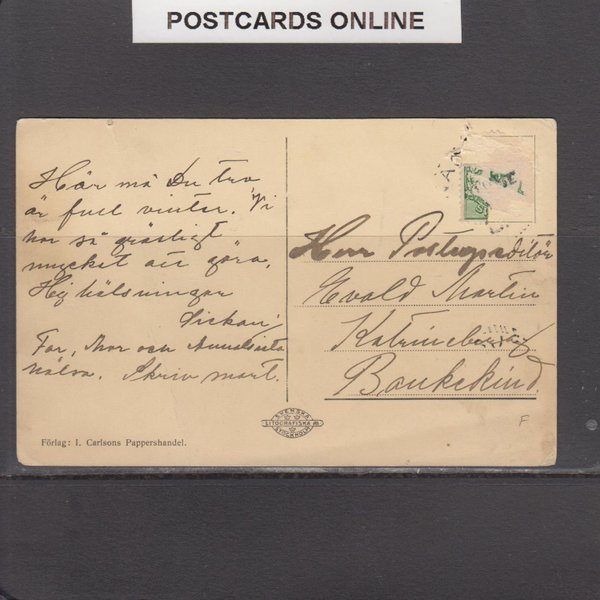 POSTCARDS ONLINE
Här må Du tro
är full vinter. Vi
har så gräsligt
mycket att göra.
Hej hälsningar
Sickan
Far, Mor och
hälsa. Skriv snart.
Herr Postexpeditör
Evald Martin
Bankekind
SVENSKA
LITOGRAFISKA AB.
STOCKHOLM
Förlag: I. Carlsons Pappershandel.
F